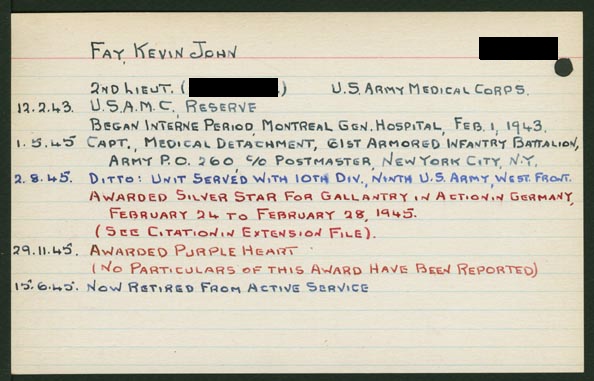 FAY, KEVIN JOHN
2ND LIEUT. ( .) U.S. ARMY MEDICAL CORPS.
12.2.43. U.S.A.M.C. RESERVE
BEGAN INTERNE PERIOD, MONTREAL GEN. HOSPITAL, FEB. 1, 1943.
1.5.45 CAPT., MEDICAL DETACHMENT, 61ST ARMORED INFANTRY BATTALION,
ARMY P.O. 260, C/O POSTMASTER, NEW YORK CITY, N.Y.
2.8.45. DITTO: UNIT SERVED WITH 10TH DIV., NINTH U.S. ARMY, WEST. FRONT.
AWARDED SILVER STAR FOR GALLANTRY IN ACTION IN GERMANY,
FEBRUARY 24 TO FEBRUARY 28, 1945.
(SEE CITATION IN EXTENSION FILE).
29.11.45. AWARDED PURPLE HEART
(NO PARTICULARS OF THIS AWARD HAVE BEEN REPORTED)
15.6.45. NOW RETIRED FROM ACTIVE SERVICE